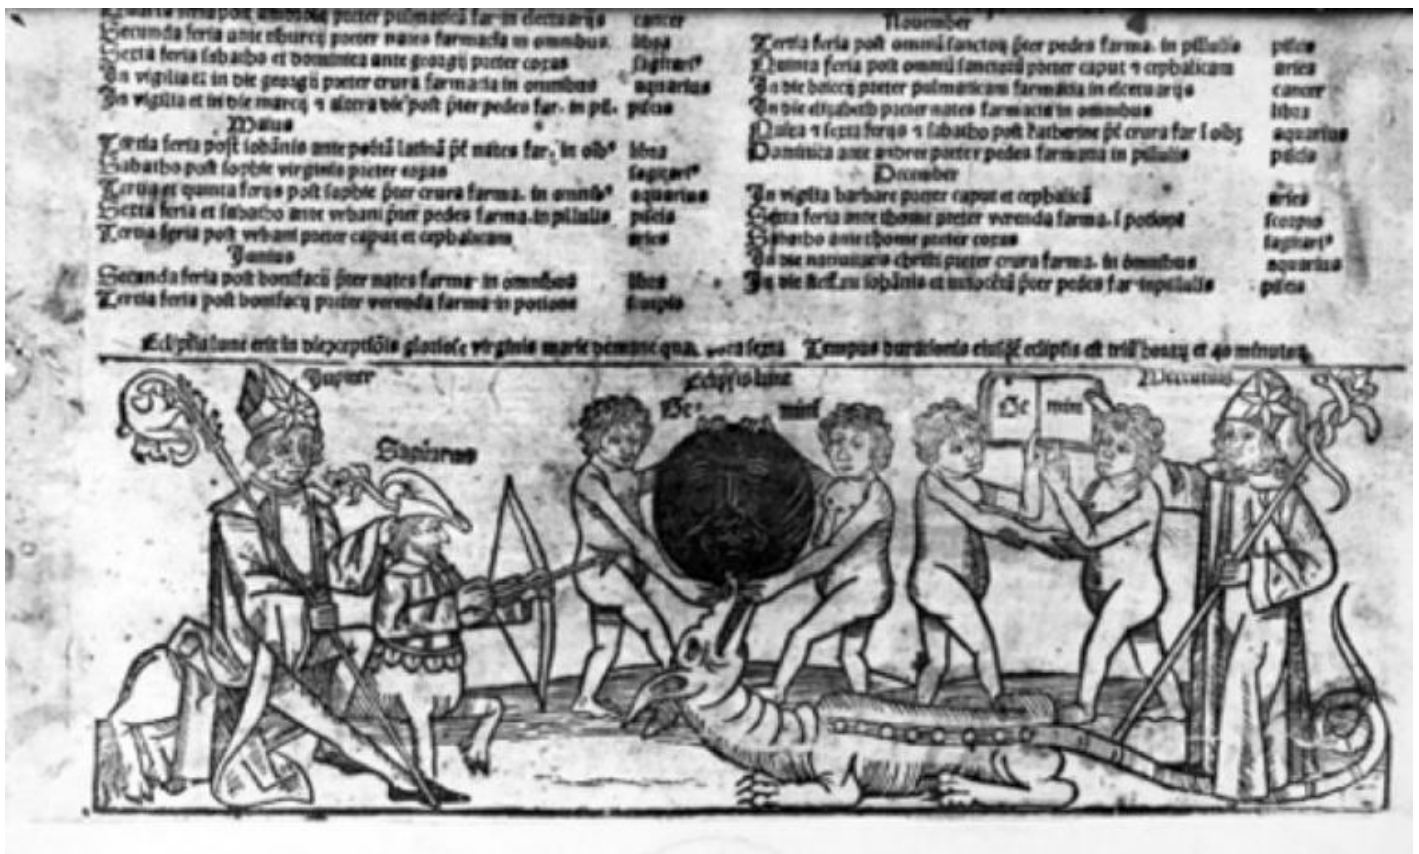 Secunda feria ante tiburcij preter nates farmacia in omnibus. libra
Sexta feria sabatho et dominica ante georgij preter coxas sagitari⁹
In vigilia et in die georgij preter crura farmacia in omnibus aquarius
In vigilia et in die marcij ⁊ altera die post p̄ter pedes far. in pil. piscis
Maius
Tertia feria post iohānis ante portā latinā p̄t nates far. in oīb⁹ libra
Sabatho post sophie virginis preter coxas sagitari⁹
Tertia et quinta ferijs post sophie p̄ter crura farma. in omnib⁹ aquarius
Sexta feria et sabatho ante vrbani p̄ter pedes farma. in pillulis piscis
Tertia feria post vrbani preter caput et cephalicam aries
Junius
Secunda feria post bonifacii p̄ter nates farma. in omnibus libra
Tertia feria post bonifacij preter verenda farma. in potione scorpio
Nouember
Tertia feria post omniū sanctoꝝ p̄ter pedes farma. in pillulis piscis
Quinta feria post omniū sanctorū preter caput ⁊ cephalicam aries
In die preter pulmaticam farmacia in electuarijs cancer
In die elizabeth preter nates farmacia in omnibus libra
⁊ sexta ferijs ⁊ sabatho post katherine p̄t crura far ī oībꝫ aquarius
Dominica ante andree preter pedes farmacia in pillulis piscis
December
In vigilia barbare preter caput et cephalicā aries
Sexta feria ante thome preter verenda farma. ī potione scorpio
Sabatho ante thome preter coxas sagitari⁹
In die natiuitatis christi preter crura farma. in omnibus aquarius
In die steffani iohānis et innocētū p̄ter pedes far. in pilulis piscis
Eclipsis lune erit in die gloriose virginis marie hora sexta Tempus durationis eiusdē eclipsis est triū horaꝝ et 40 minutoꝝ
Jupiter
Eclipsis lune
Mercurius
Ge mini
Ge mini
Sagitarius